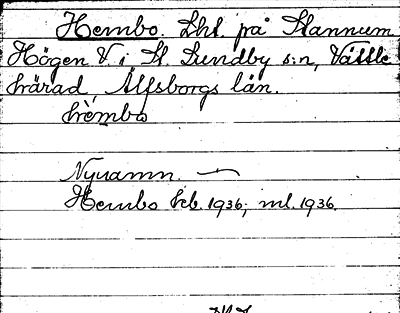 Hembo. Lht. på Stannum
Högen V. i St. Lundby s:n, Vättle
härad, Älfsborgs län.
hèmbo
Nynamn.
Hembo hcb. 1936; ml. 1936.